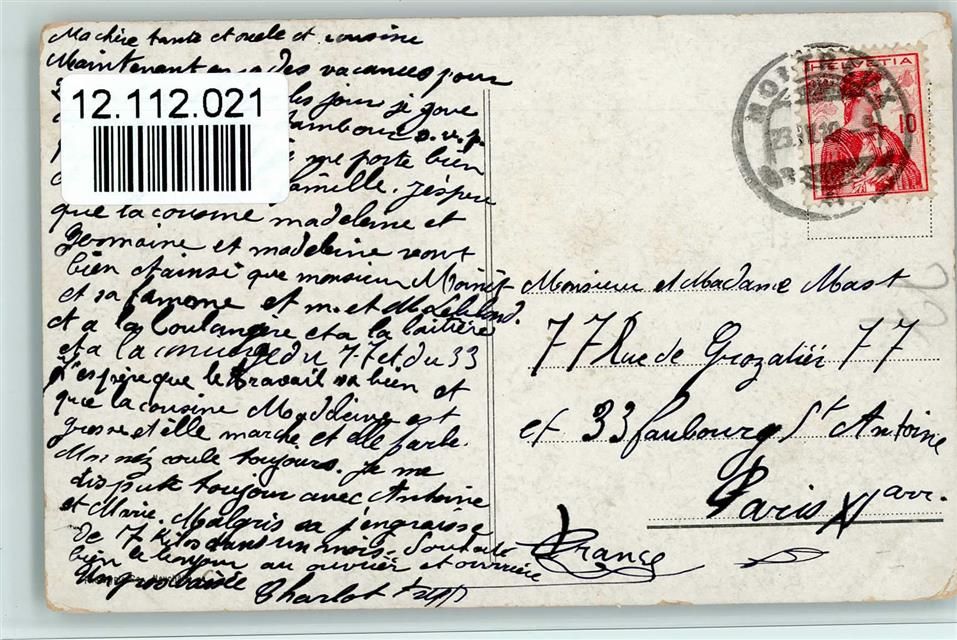 Ma chère tante et oncle et cousine
Maintenant des vacances pour
12.112.021
les jour je joue
tambour s.v.p.
me porte bien
famille. J'éspere
que la cousine madeleine et
germaine et madeleine vont
bien et ainsi que monsieur
et sa famme et m. et
et a la boulangère et a la laitière
et a la concierge du 77 et du 33
j'espère que le travail va bien et
que la cousine Madeleine est
grosse et elle marche et elle parle.
Mon néz coule toujours. Je me
dispute toujour avec Antoine
et Marie. Malgris sa j'engraisse
de 17 kilos dans un mois.
bien le bonjour au ouvrier et ouvrière
Charlot
HELVETIA
10
Monsieur et Madame Mast
77 Rue de Grozatier 77
et 33 faubourg St Antoine
Paris XI arr.
France